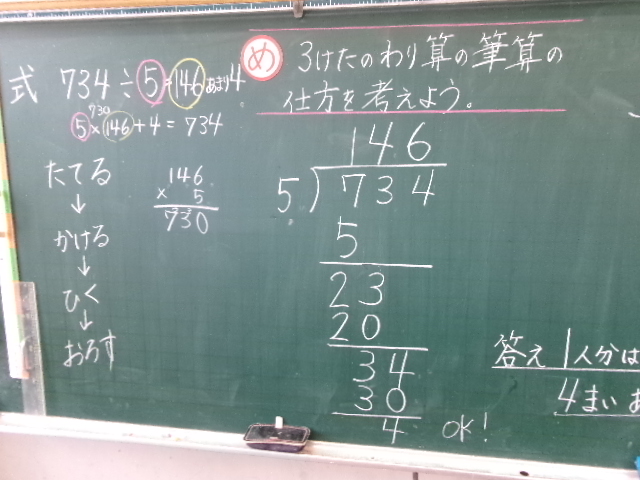 め 3けたのわり算の筆算の
仕方を考えよう。
式 734÷5=146あまり4
730
5×146+4=734
たてる
↓
かける
↓
ひく
↓
おろす
146
× 5
730
146
5)734
5
23
20
34
30
4 OK!
答え 1人分は
4まい あ